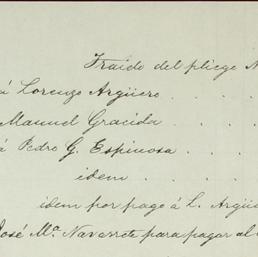 Traido del pliego N
á Lorenzo Argüero . . .
Manuel Gracida . . .
á Pedro G. Espinosa . . .
idem . . .
idem por pago á L. Argüe
José Mª Navarrete para pagar al